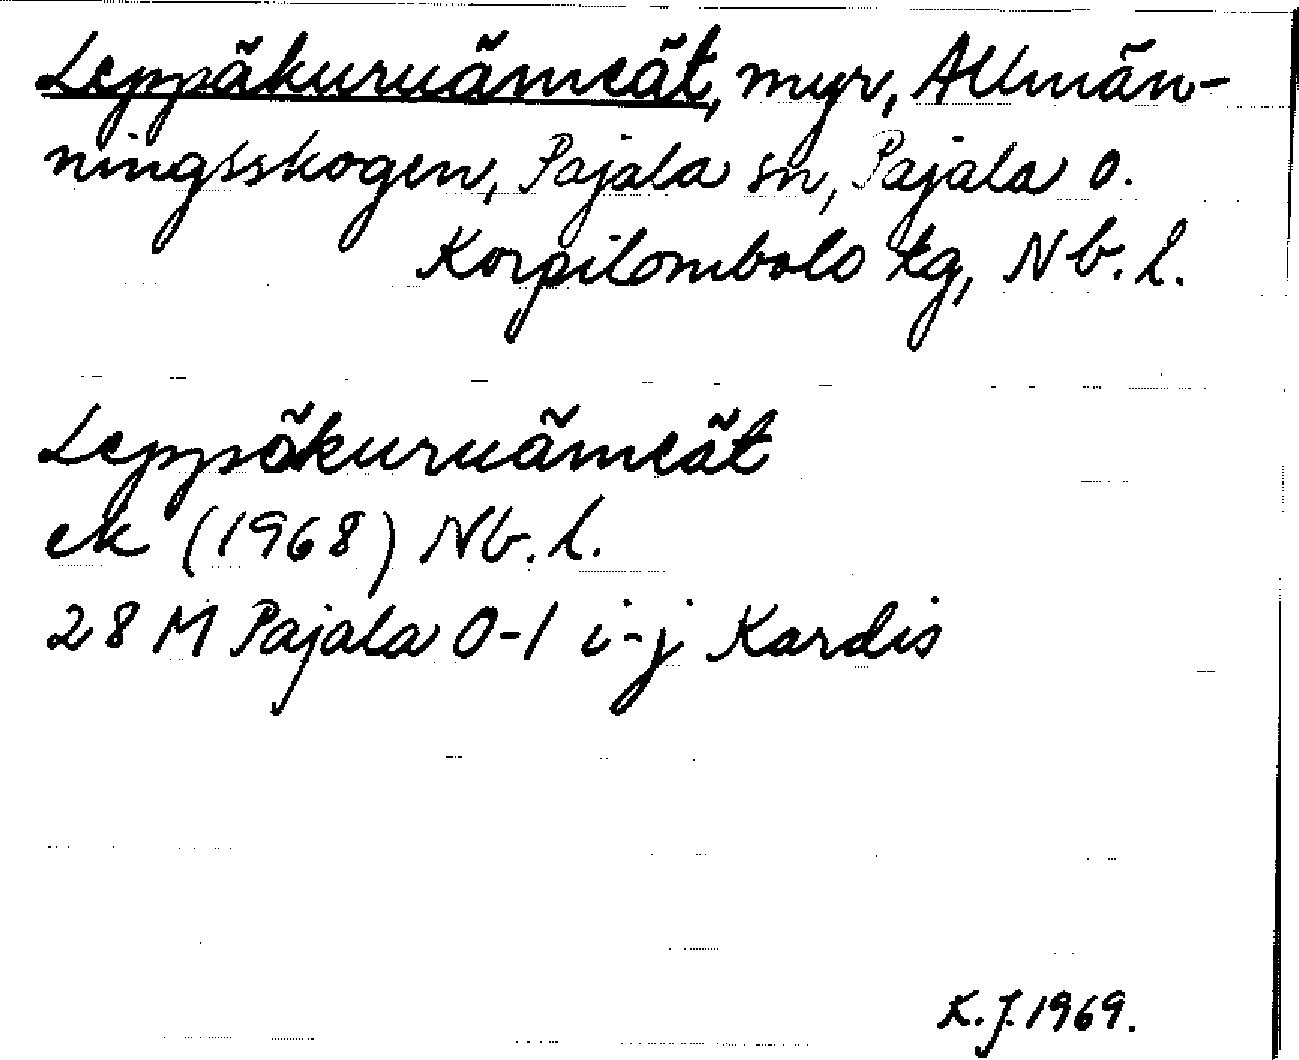 Leppäkuruämeät, myr, Allmän-
ningsskogen, Pajala sn, Pajala o.
Korpilombolo tg, Nb. l.
Leppäkuruämeät
ek (1968) Nb. l.
28 M Pajala 0-1 i-j Kardis
K. J. 1969.